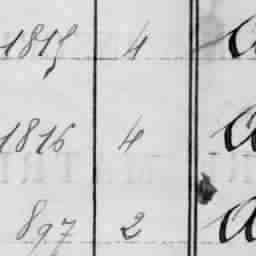 1815 4 a
1816 4 a
897 2 a